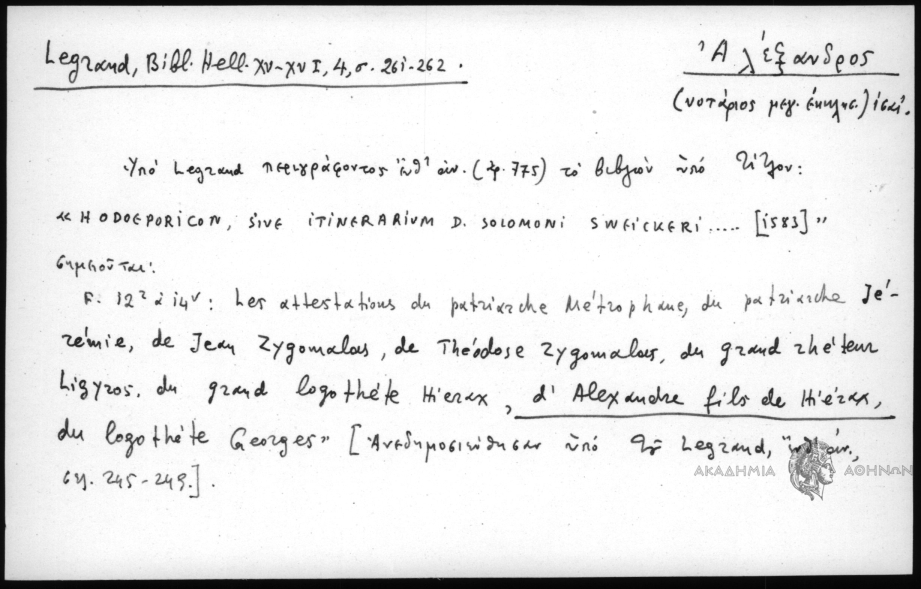 Legrand, Bibl. Hell. XV-XVI, 4, σ. 261-262.
Ἀλέξανδρος
(νοτάριος μεγ. ἐκκλησ.) ις΄ αἰ.
Ὑπό Legrand περιγράφοντος ἔνθ' ἀν. (ἀρ. 775) τό βιβλίον ὑπό τίτλον:
« HODOEPORICON, SIVE ITINERARIUM D. SOLOMONI SWEICKERI..... [1583] "
σημειοῦται:
F. 12r à 14v : Les attestations du patriarche Métrophane, du patriarche Jé-
rémie, de Jean Zygomalas, de Théodose Zygomalas, du grand rhéteur
Ligyros, du grand logothète Hierax, d'Alexandre fils de Hiérax,
du logothète Georges" [Ἀνεδημοσιεύθησαν ὑπό τοῦ Legrand, ἔνθ' ἀν.,
σσ. 245-249.].
ΑΚΑΔΗΜΙΑ ΑΘΗΝΩΝ